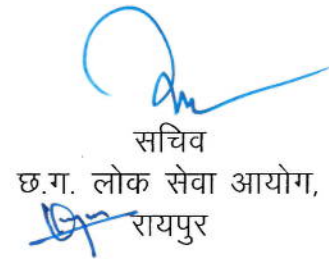 सचिव
छ.ग. लोक सेवा आयोग,
रायपुर